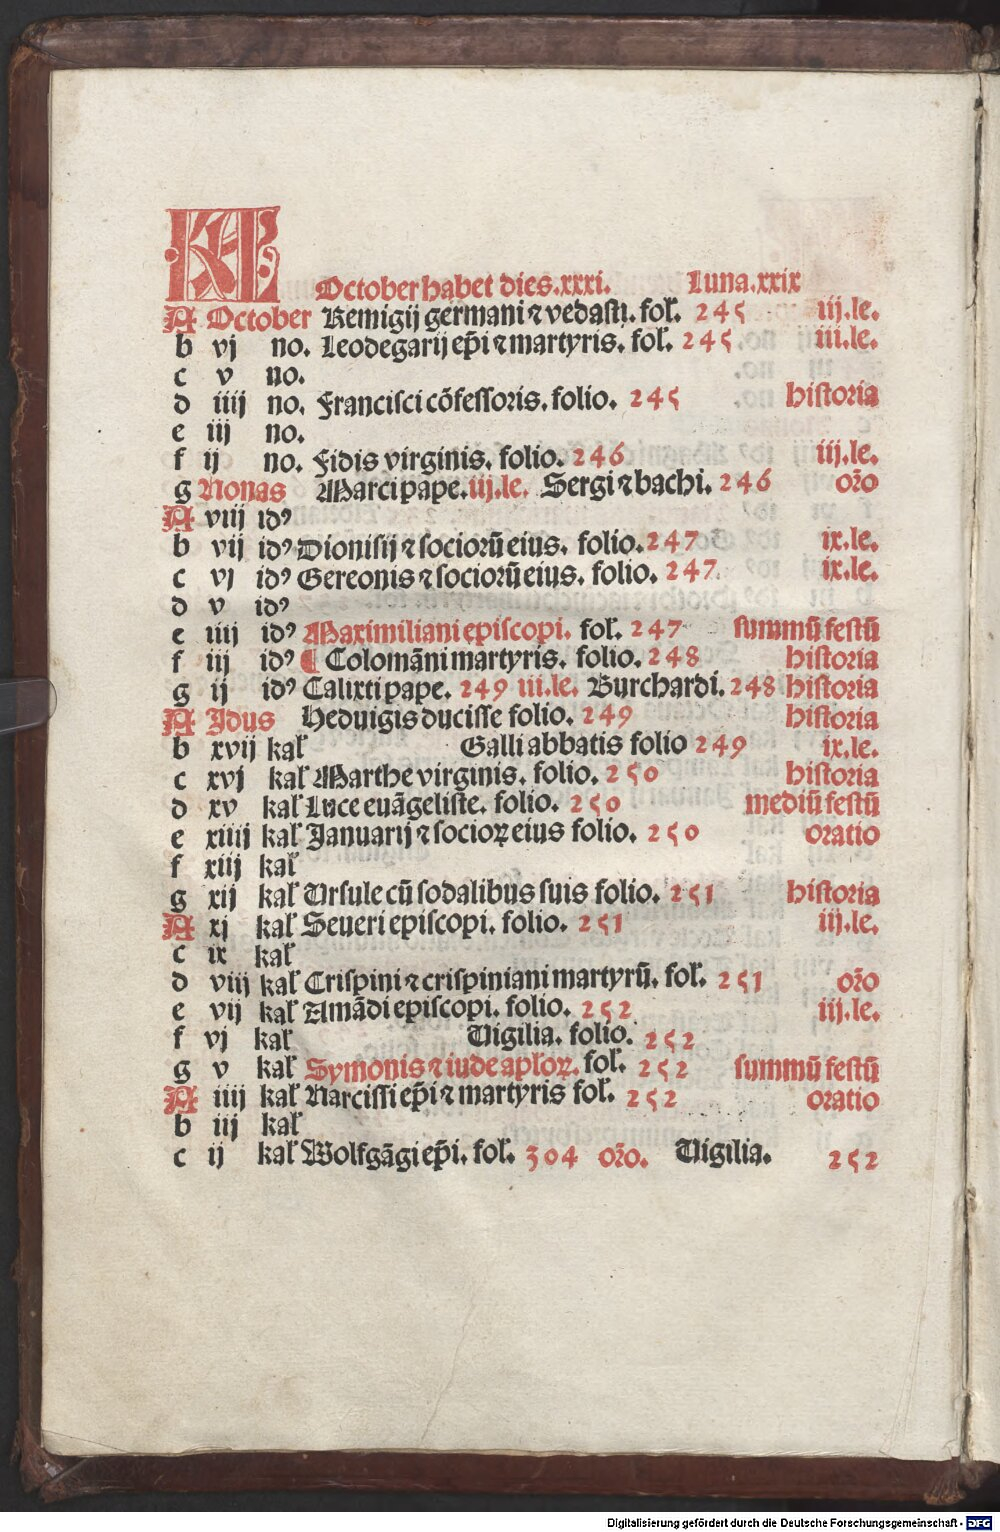 KL
October habet dies.xxxi. Luna.xxix
A October Remigij germani ⁊ vedasti. fol. 245 iij.le.
b vj no. Leodegarij ep̄i ⁊ martyris. fol. 245 iij.le.
c v no.
d iiij no. Francisci cōfessoris. folio. 245 historia
e iij no.
f ij no. Fidis virginis. folio. 246 iij.le.
g Nonas Marci pape. iij.le. Sergi ⁊ bachi. 246 or̄o
A viij idꝰ
b vij idꝰ Dionisij ⁊ sociorū eius. folio. 247 ix.le.
c vj idꝰ Gereonis ⁊ sociorū eius. folio. 247 ix.le.
d v idꝰ
e iiij idꝰ Maximiliani episcopi. fol. 247 summū festū
f iij idꝰ ¶ Colomāni martyris. folio. 248 historia
g ij idꝰ Calixti pape. 249 iii.le. Burchardi. 248 historia
A Idus Heduigis ducisse folio. 249 historia
b xvij kal Galli abbatis folio 249 ix.le.
c xvj kal Marthe virginis. folio. 250 historia
d xv kal Luce euāgeliste. folio. 250 mediū festū
e xiiij kal Januarij ⁊ socioꝝ eius folio. 250 oratio
f xiij kal
g xij kal Ursule cū sodalibus suis folio. 251 historia
A xj kal Seueri episcopi. folio. 251 iij.le.
c ix kal
d viij kal Crispini ⁊ crispiniani martyrū. fol. 251 or̄o
e vij kal Amādi episcopi. folio. 252 iij.le.
f vj kal Vigilia. folio. 252
g v kal Symonis ⁊ iude apl̄oꝝ. fol. 252 summū festū
A iiij kal Narcissi ep̄i ⁊ martyris fol. 252 oratio
b iij kal
c ij kal Wolfgāgi ep̄i. fol. 304 or̄o. Vigilia. 252
Digitalisierung gefördert durch die Deutsche Forschungsgemeinschaft - DFG